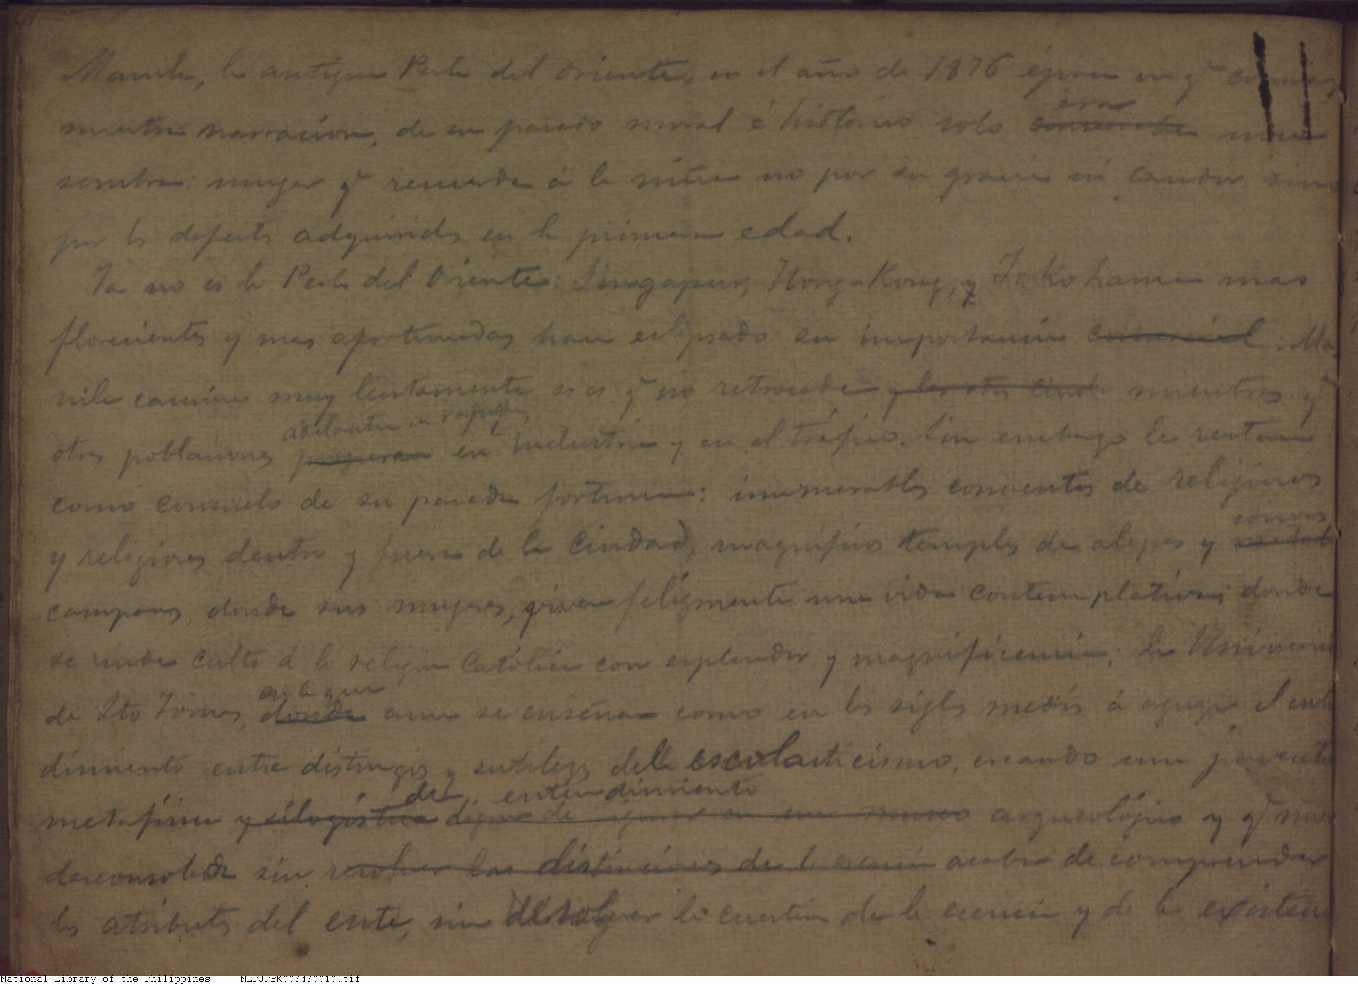 Manila, la antigua Perla del Oriente, en el año de 1876 época en qᵉ comienza
nuestra narracion, de su pasado moral é histórico solo era conservaba una
sombra: mujer qᵉ recuerda á la niña no por su gracia ni candor sino
por los defectos adquiridos en la primera edad.
Ya no es la Perla del Oriente: Singapur, Hong-Kong, y Yokohama mas
florecientes y mas afortunadas han eclipsado su importancia comercial. Ma
nila camina muy lentamente si es qᵉ no retrocede y las otras ciuda mientras qᵉ
adelantan en
otras poblaciones progresan en industria y en el tráfico. Sin embargo le restan
como consuelo de su pasada fortuna: inumerables conventos de religiosos
sonoras
y religiosas dentro y fuera de la Ciudad, magníficos templos de alegres y
campanas donde sus mujeres, viven felizmente una vida contemplativa; donde
se rinde culto á la religion Católica con esplendor y magnificencia; la Universi
en la que
de Sto Tomas, donde aun se enseña como en los siglos medios á aguzar el ente
dimiento entre distingos y sutilezas del escolasticismo, creando una juventud
de entendimiento
metafísica y silogística digna de figurar en un museo arqueológico y qᵉ muere
desconsolada sin resolver las distinciones de la esencia acaba de comprender
los atributos del ente, sin la cuestion de la esencia y de la existen
II
National Library of the Philippines